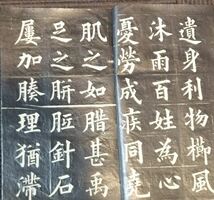 遺身利物櫛風
沐雨百姓為心
憂勞成疾同堯
肌之如腊甚禹
足之胼胝針石
屢加腠理猶滯